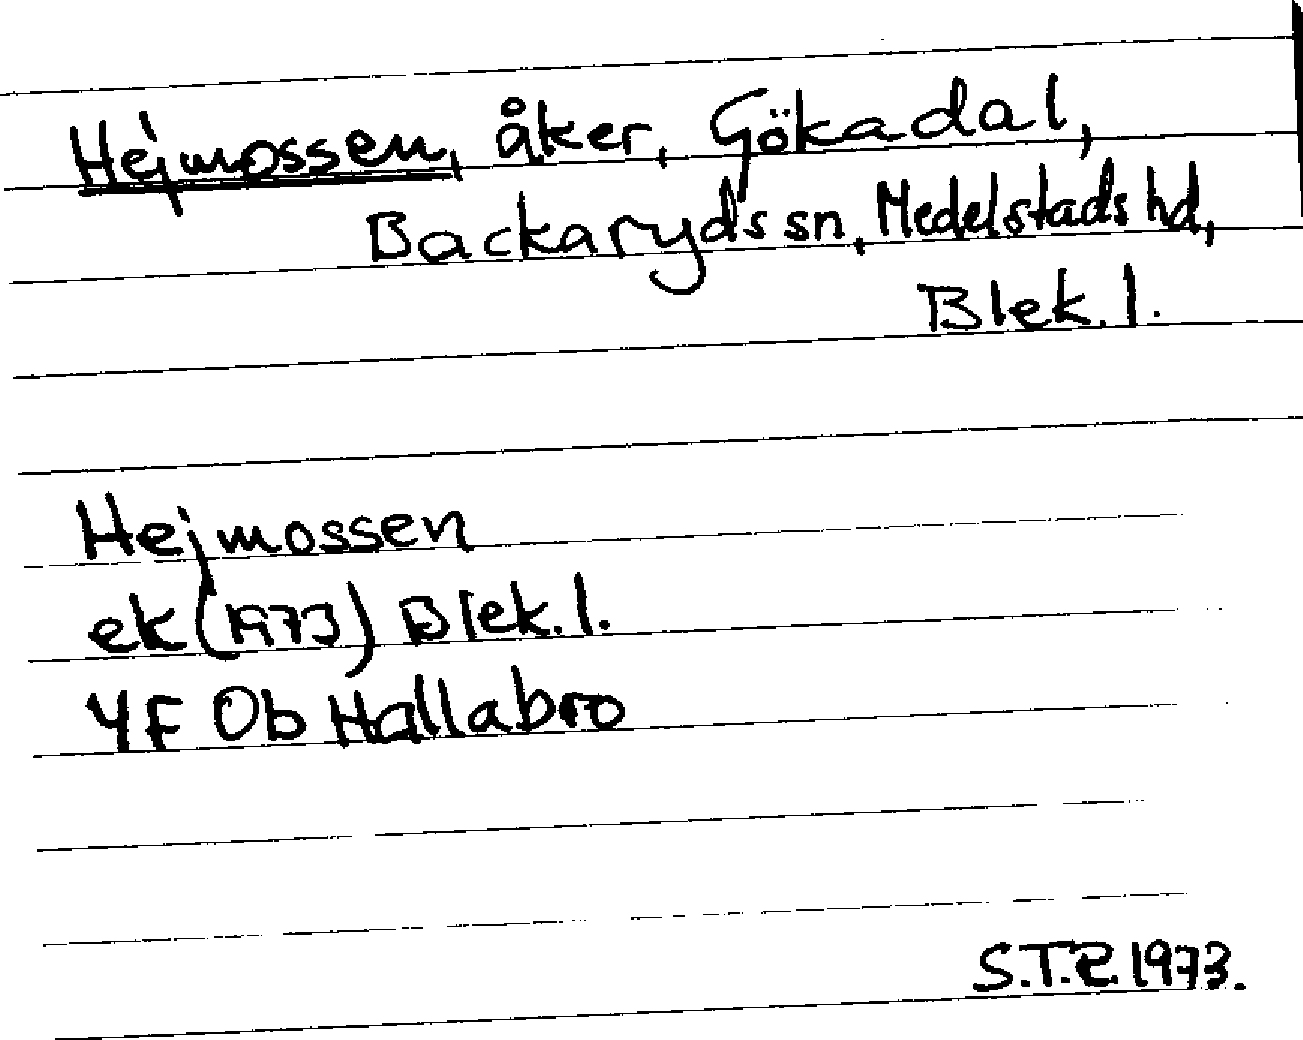 Hejmossen, åker, Gökadal,
Backaryds sn, Medelstads hd,
Blek. l.
Hejmossen
ek (1973) Blek. l.
4F Ob Hallabro
S.T.R. 1973.